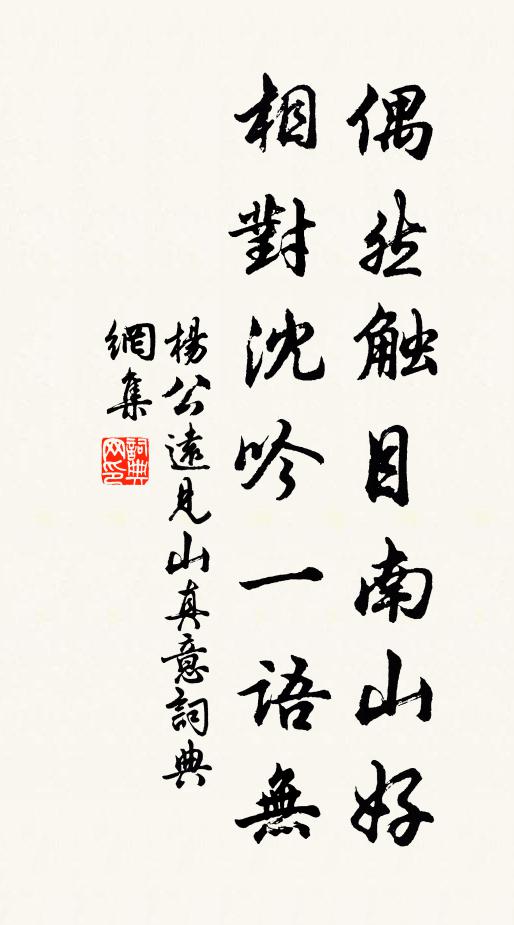 偶然触目南山好
相對沈吟一語無
楊公遠見山真意詞典
網集
詞典網印